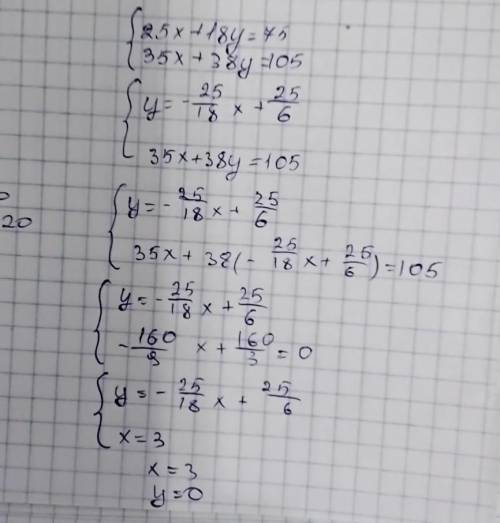 25x+18y=75
35x+38y=105
y=-25/18 x+25/6
35x+38y=105
20
y=-25/18 x+25/6
35x+38(-25/18 x+25/6)=105
y=-25/18 x+25/6
-160/9 x+160/3=0
y=-25/18 x+25/6
x=3
x=3
y=0